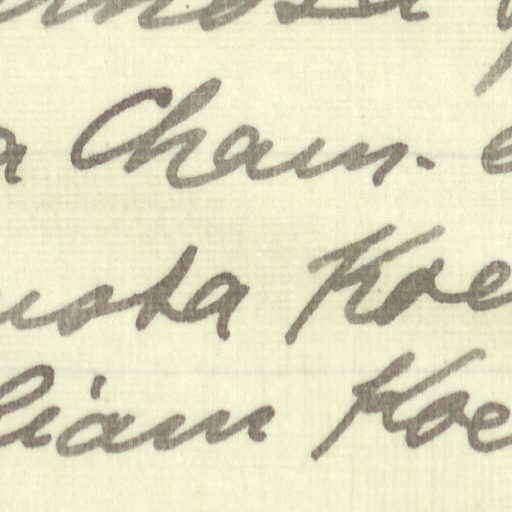 a Cham.
usta Koe
liam Koe